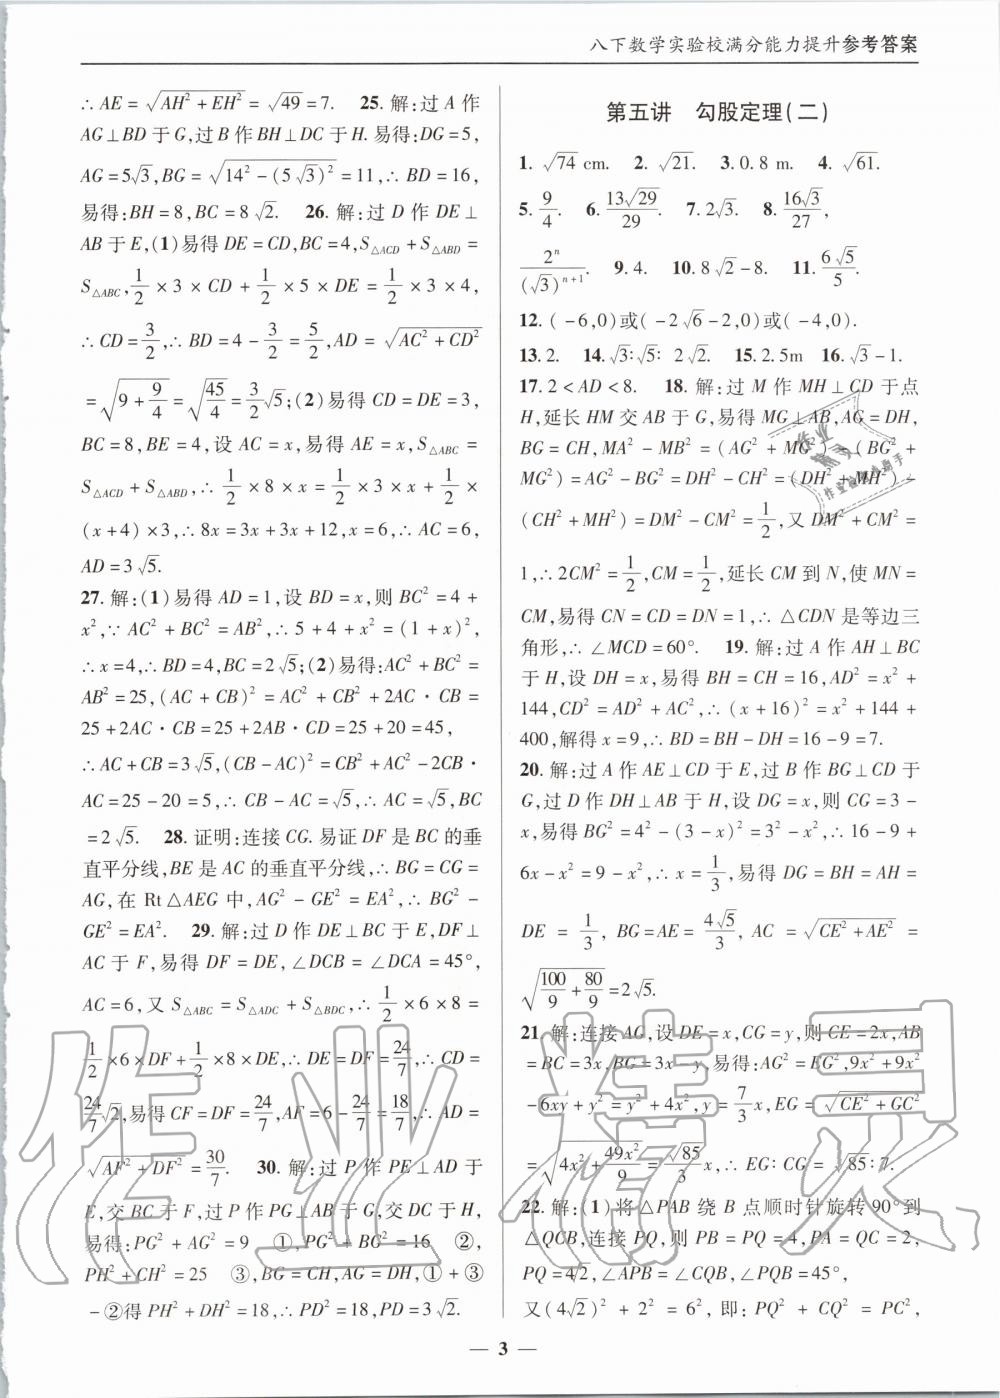 八下数学实验校满分能力提升参考答案
∴AE=√(AH²+EH²)=√49=7. 25.解:过A作
AG⊥BD于G,过B作BH⊥DC于H.易得:DG=5,
AG=5√3,BG=√(14²-(5√3)²)=11,∴BD=16,
易得:BH=8,BC=8√2. 26.解:过D作DE⊥
AB于E,(1)易得DE=CD,BC=4,S△ACD+S△ABD=
S△ABC,1/2×3×CD+1/2×5×DE=1/2×3×4,
∴CD=3/2,∴BD=4-3/2=5/2,AD=√(AC²+CD²)
=√(9+9/4)=√(45/4)=3/2√5;(2)易得CD=DE=3,
BC=8,BE=4,设AC=x,易得AE=x,S△ABC=
S△ACD+S△ABD,∴1/2×8×x=1/2×3×x+1/2×
(x+4)×3,∴8x=3x+3x+12,x=6,∴AC=6,
AD=3√5.
27.解:(1)易得AD=1,设BD=x,则BC²=4+
x²,∵AC²+BC²=AB²,∴5+4+x²=(1+x)²,
∴x=4,∴BD=4,BC=2√5;(2)易得:AC²+BC²=
AB²=25,(AC+CB)²=AC²+CB²+2AC·CB=
25+2AC·CB=25+2AB·CD=25+20=45,
∴AC+CB=3√5,(CB-AC)²=CB²+AC²-2CB·
AC=25-20=5,∴CB-AC=√5,∴AC=√5,BC
=2√5. 28.证明:连接CG.易证DF是BC的垂
直平分线,BE是AC的垂直平分线,∴BG=CG=
AG,在Rt△AEG中,AG²-GE²=EA²,∴BG²-
GE²=EA². 29.解:过D作DE⊥BC于E,DF⊥
AC于F,易得DF=DE,∠DCB=∠DCA=45°,
AC=6,又S△ABC=S△ADC+S△BDC,∴1/2×6×8=
1/2×6×DF+1/2×8×DE,∴DE=DF=24/7,∴CD=
24/7√2,易得CF=DF=24/7,AF=6-24/7=18/7,∴AD=
√(AF²+DF²)=30/7. 30.解:过P作PE⊥AD于
E,交BC于F,过P作PG⊥AB于G,交CD于H,
易得:PG²+AG²=9 ①,PG²+BG²=16 ②,
PH²+CH²=25 ③,BG=CH,AG=DH,①+③
-②得PH²+DH²=18,∴PD²=18,PD=3√2.
第五讲 勾股定理(二)
1.√74 cm. 2.√21. 3.0.8 m. 4.√61.
5.9/4. 6.13√29/29. 7.2√3. 8.16√3/27,
2ⁿ/(√3)ⁿ⁺¹. 9.4. 10.8√2-8. 11.6√5/5.
12.(-6,0)或(-2√6-2,0)或(-4,0).
13.2. 14.√3:√5:2√2. 15.2.5m 16.√3-1.
17.2<AD<8. 18.解:过M作MH⊥CD于点
H,延长HM交AB于G,易得MG⊥AB,AG=DH,
BG=CH,MA²-MB²=(AG²+MG²)-(BG²+
MG²)=AG²-BG²=DH²-CH²=(DH²+MH²)-
(CH²+MH²)=DM²-CM²=1/2,又DM²+CM²=
1,∴2CM²=1/2,CM=1/2,延长CM到N,使MN=
CM,易得CN=CD=DN=1,∴△CDN是等边三
角形,∴∠MCD=60°. 19.解:过A作AH⊥BC
于H,设DH=x,易得BH=CH=16,AD²=x²+
144,CD²=AD²+AC²,∴(x+16)²=x²+144+
400,解得x=9,∴BD=BH-DH=16-9=7.
20.解:过A作AE⊥CD于E,过B作BG⊥CD于
G,过D作DH⊥AB于H,设DG=x,则CG=3-
x,易得BG²=4²-(3-x)²=3²-x²,∴16-9+
6x-x²=9-x²,∴x=1/3,易得DG=BH=AH=
DE=1/3,BG=AE=4√5/3,AC=√(CE²+AE²)=
√(100/9+80/9)=2√5.
21.解:连接AG,设DE=x,CG=y,则CE=2x,AB
=BC=3x,BG=3x-y,易得:AG²=EG²,9x²+9x²
-6xy+y²=y²+4x²,y=7/3x,EG=√(CE²+GC²)
=√(4x²+49x²/9)=√85/3x,∴EG:CG=√85:7.
22.解:(1)将△PAB绕B点顺时针旋转90°到
△QCB,连接PQ,则PB=PQ=4,PA=QC=2,
PQ=4√2,∠APB=∠CQB,∠BPQ=45°,
又(4√2)²+2²=6²,即:PQ²+CQ²=PC²,
— 3 —
作业精灵